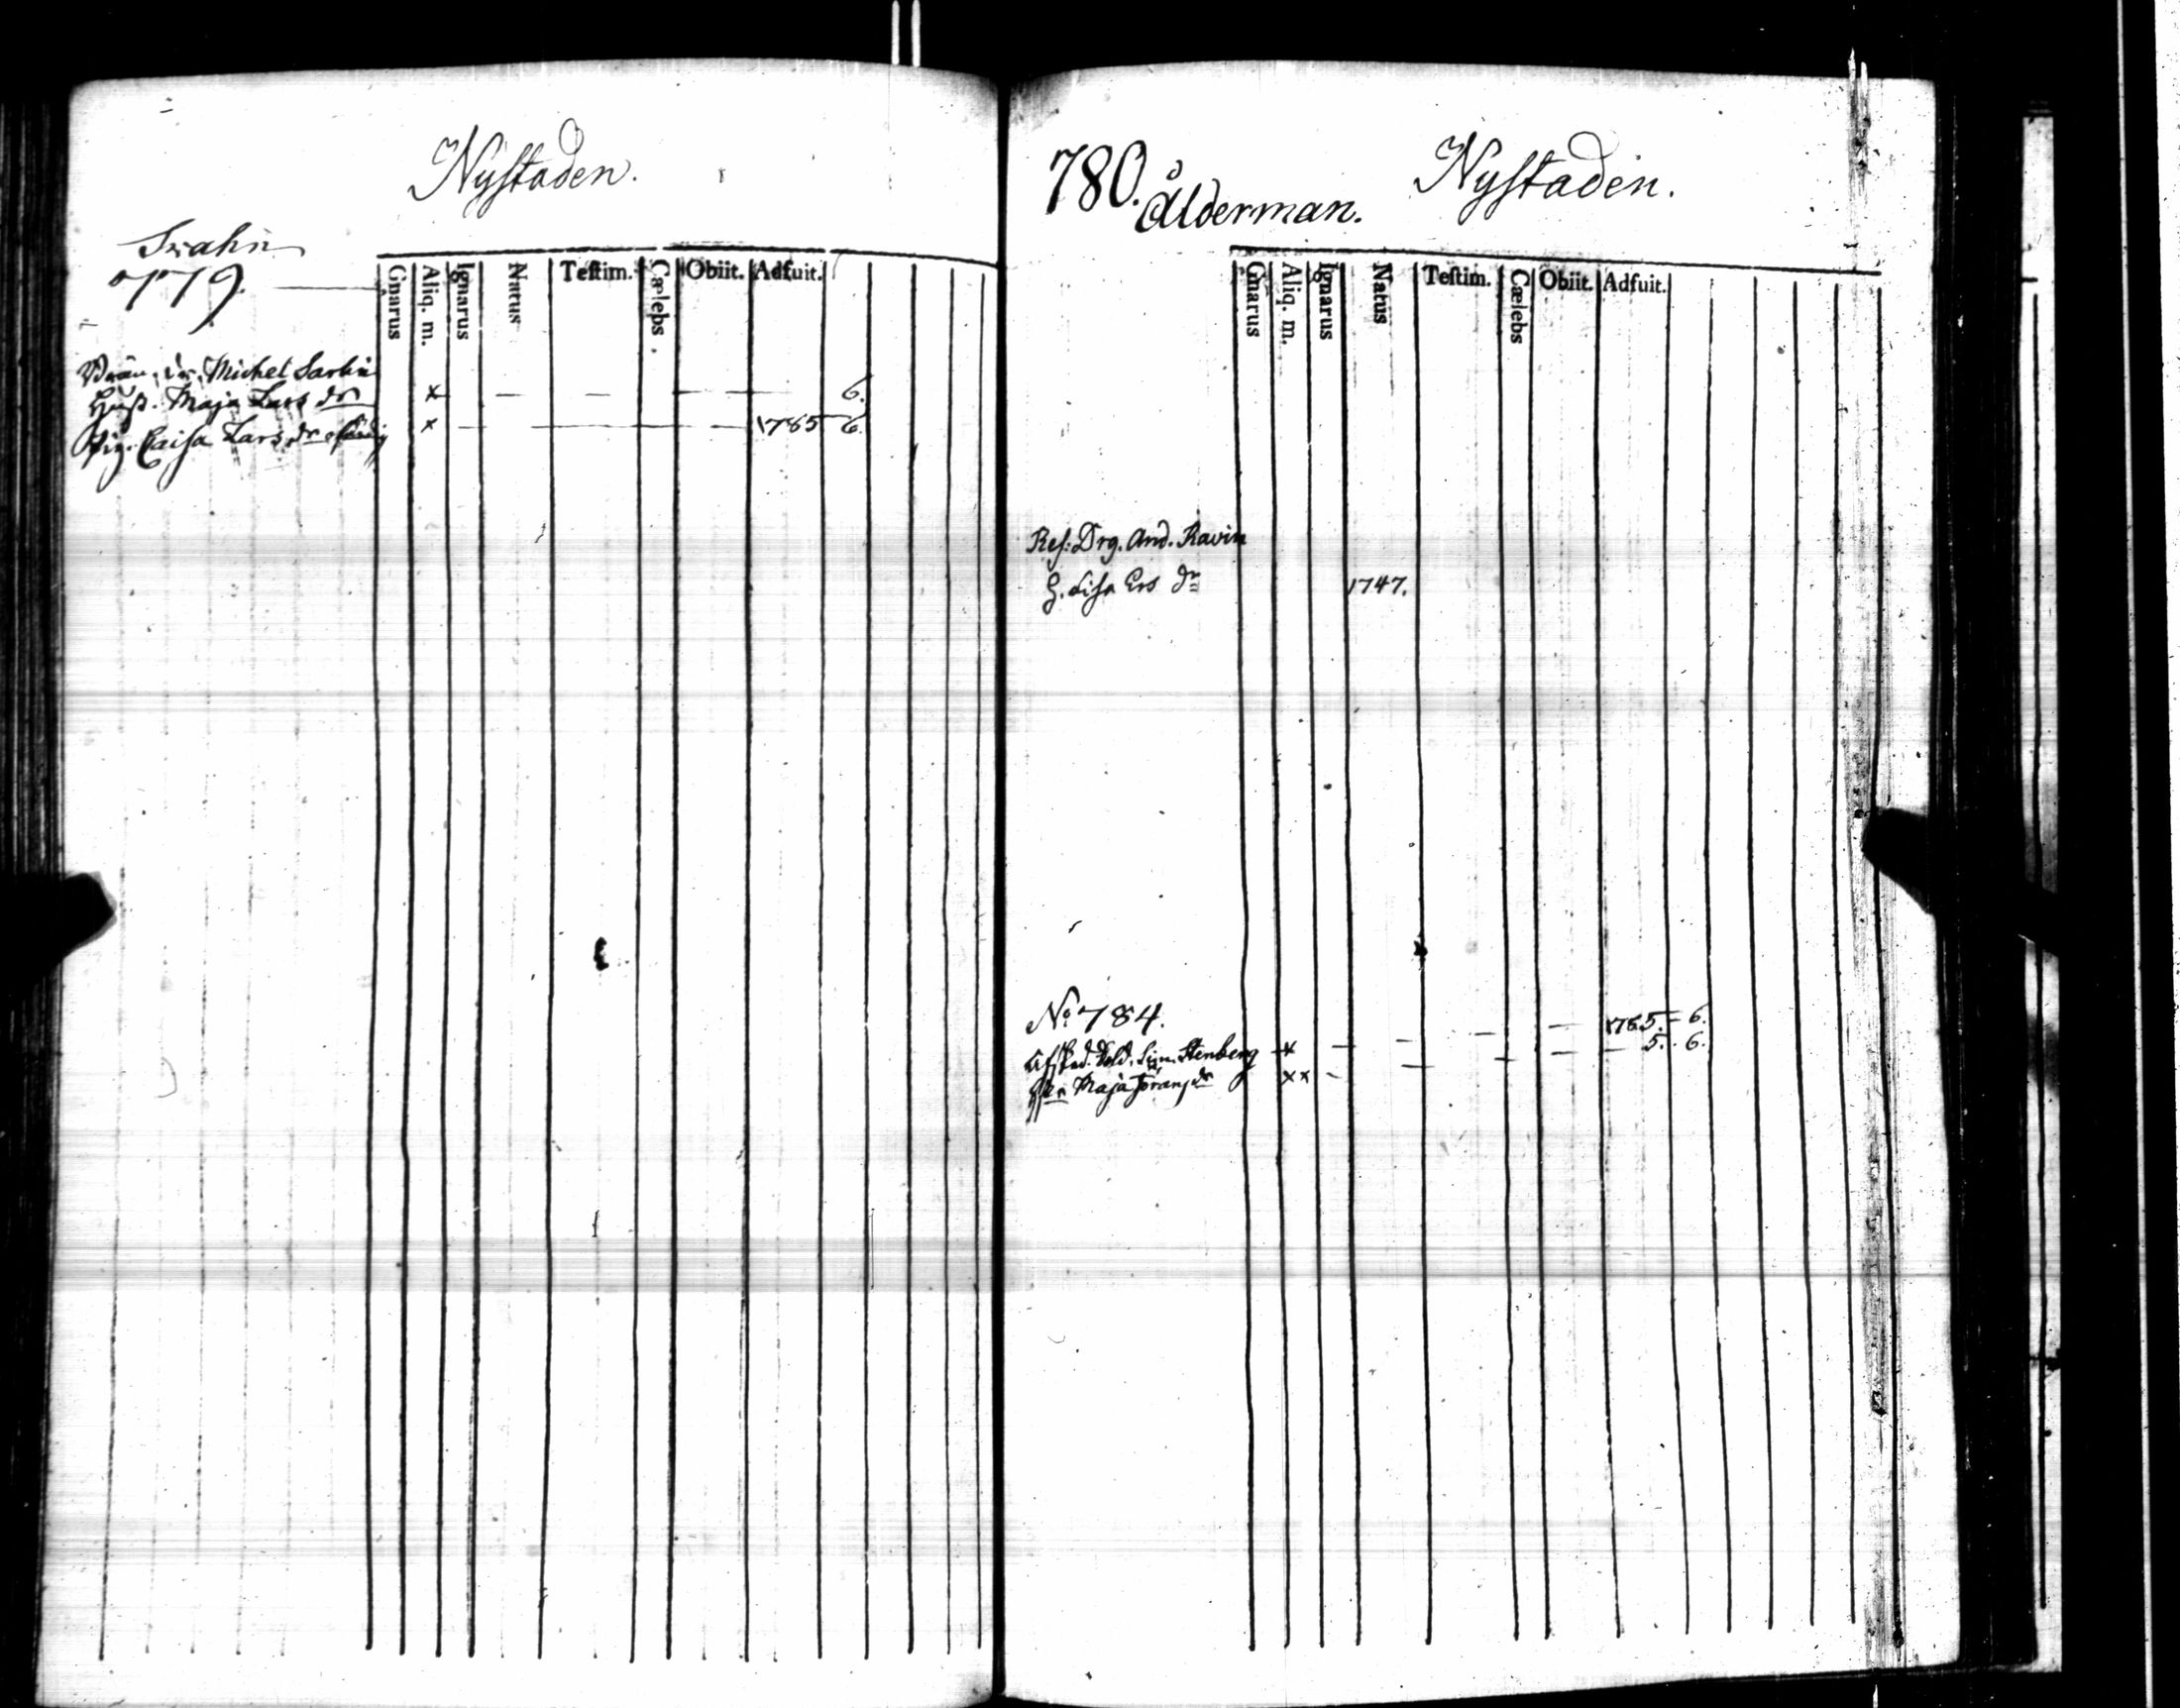 Nystaden.
779.
Gnarus Aliq. m. Ignarus Natus Testim. Cælebs. Obiit. Adfuit.
Michel
Hust. Maja Lars dr x 6.
Pig. Caisa Lars dr x 1765 6.
780. Nystaden.
Ålderman.
Gnarus Aliq. m. Ignarus Natus Testim. Cælebs Obiit. Adfuit.
Ref: Drg. And. Ravin
H. Lisa Ers dr 1747.
No 784.
Afsked. Sold. Sim. Stenberg x 1765. 6.
Maja Jöransdr xx 5. 6.